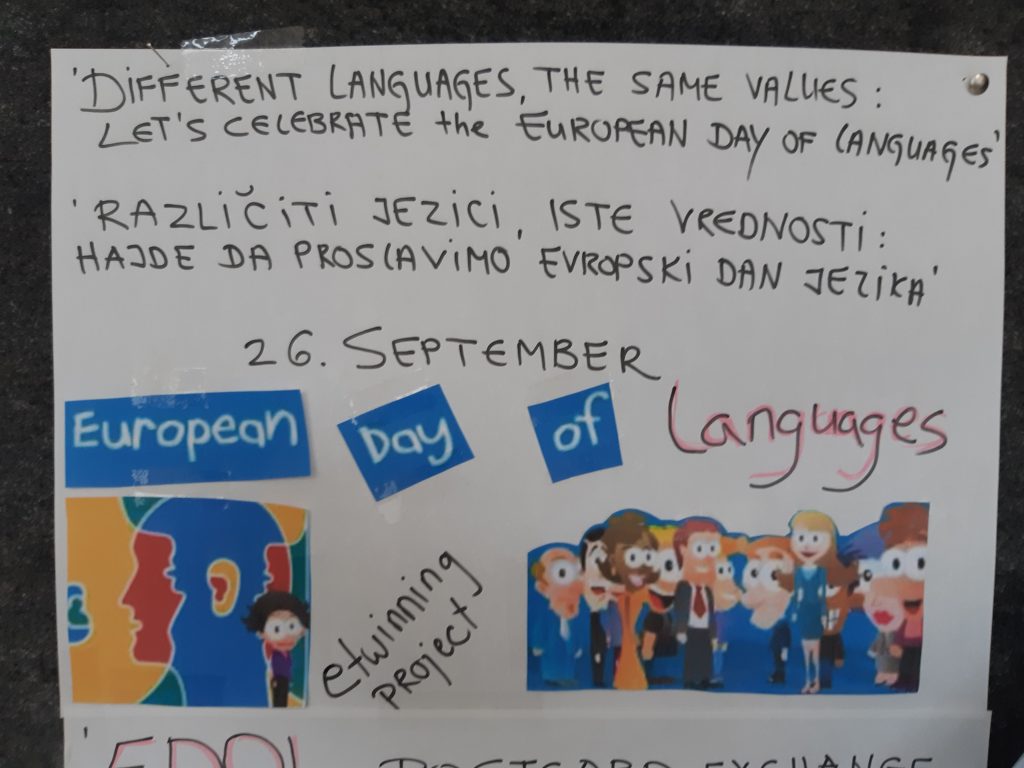 'DIFFERENT LANGUAGES, THE SAME VALUES:
LET'S CELEBRATE the EUROPEAN DAY OF LANGUAGES'
'RAZLIČITI JEZICI, ISTE VREDNOSTI:
HAJDE DA PROSLAVIMO EVROPSKI DAN JEZIKA'
26. SEPTEMBER
European Day of Languages
etwinning
project
'EDOL POSTCARD EXCHANGE